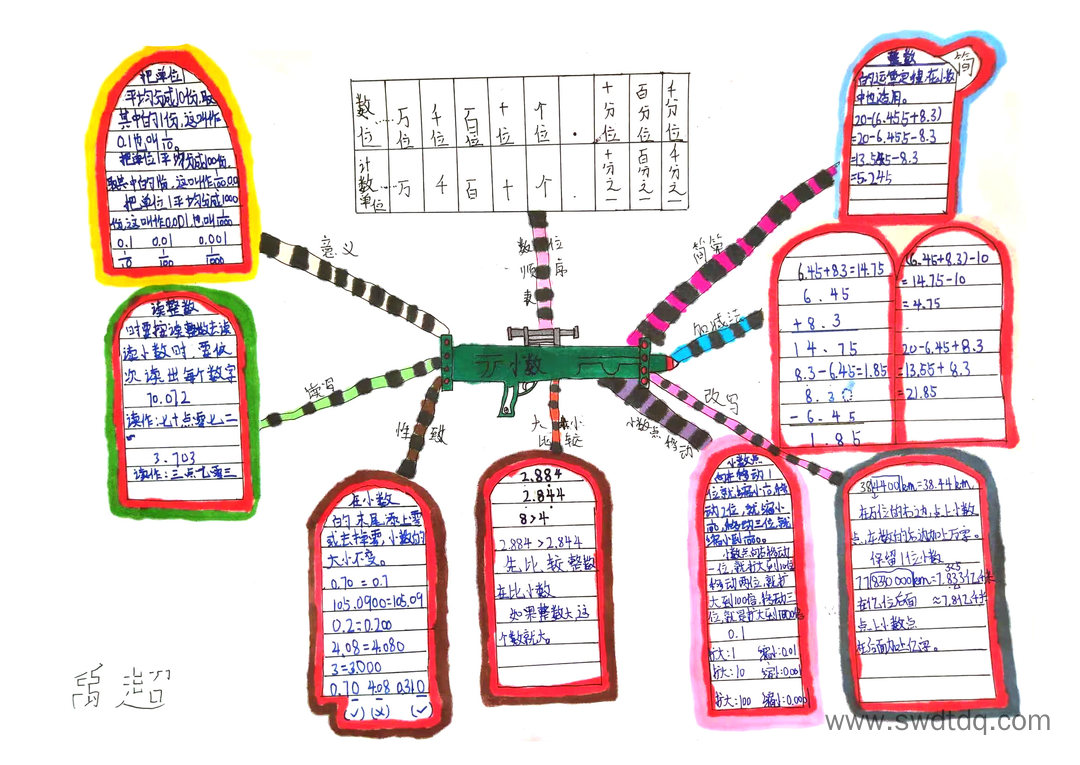 把单位1
平均分成10份,取
其中的1份,这叫作
0.1也叫1/10。
把单位1平均分成100份,
把单位1平均分成1000
0.1 0.01 0.001
1/10 1/100 1/1000
意义
读整数
时要按读整数去读
读小数时 要依
次读出每个数字
70.072
读作:七十点零七二
3.703
读作:三点七零三
读写
数位 ……万位 千位 百位 十位 个位 . 十分位 百分位 千分位
计数单位 ……万 千 百 十 个 . 十分之一 百分之一 千分之一
数位
顺序
表
小数
性致
在小数
的末尾,添上零
或去掉零,小数的
大小不变。
0.70=0.7
105.0900=105.09
0.2=0.200
4.08=4.080
3=3.000
0.70 4.08 0.310
(✓) (×) (✓)
大小
比较
2.884
2.844
8>4
2.884>2.844
先比较整数
在比小数
如果整数大这
个数就大。
小数点移动
小数点
向左移动1
小数点向右移动
一位,就扩大到10倍
移动两位,就扩
大到100倍,移动三
0.1
扩大:1 缩小:0.01
扩大:10 缩小:0.001
扩大:100
改写
384400km=38.44km.
在万位的右边,点上小数
点,在数的右边加上万字。
保留1位小数
在亿位右面 ≈7.8亿千米
点上小数点
在后面加上亿字。
加减法
6.45+8.3=14.75
6.45
+8.3
14.75
8.3-6.45=1.85
8.30
-6.45
1.85
(6.45+8.3)-10
=14.75-10
=4.75
20-6.45+8.3
=13.55+8.3
=21.85
简算
整数
简
的运算定律,在小数
中也适用。
20-(6.455+8.3)
=20-6.455-8.3
=13.545-8.3
=5.245
禹超
www.swdtdq.com